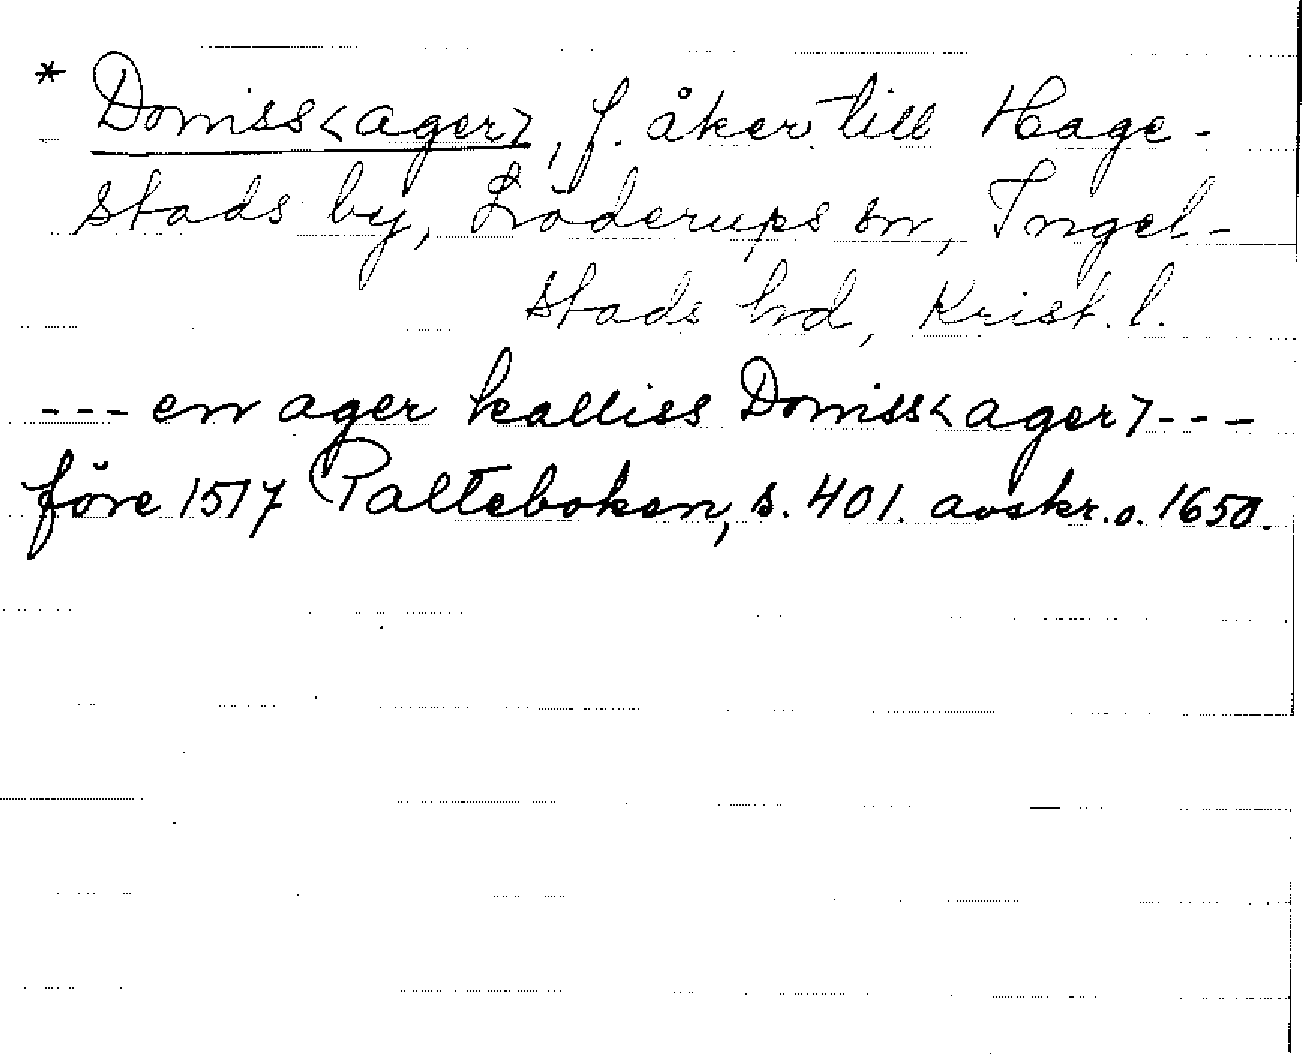 * Domiss<ager>, f. åker till Hage-
stads by, Löderups sn, Ingel-
stads hd, Krist. l.
--- en ager kalliss Domiss<ager>---
före 1517 Palteboken, s. 401. avskr. o. 1650.